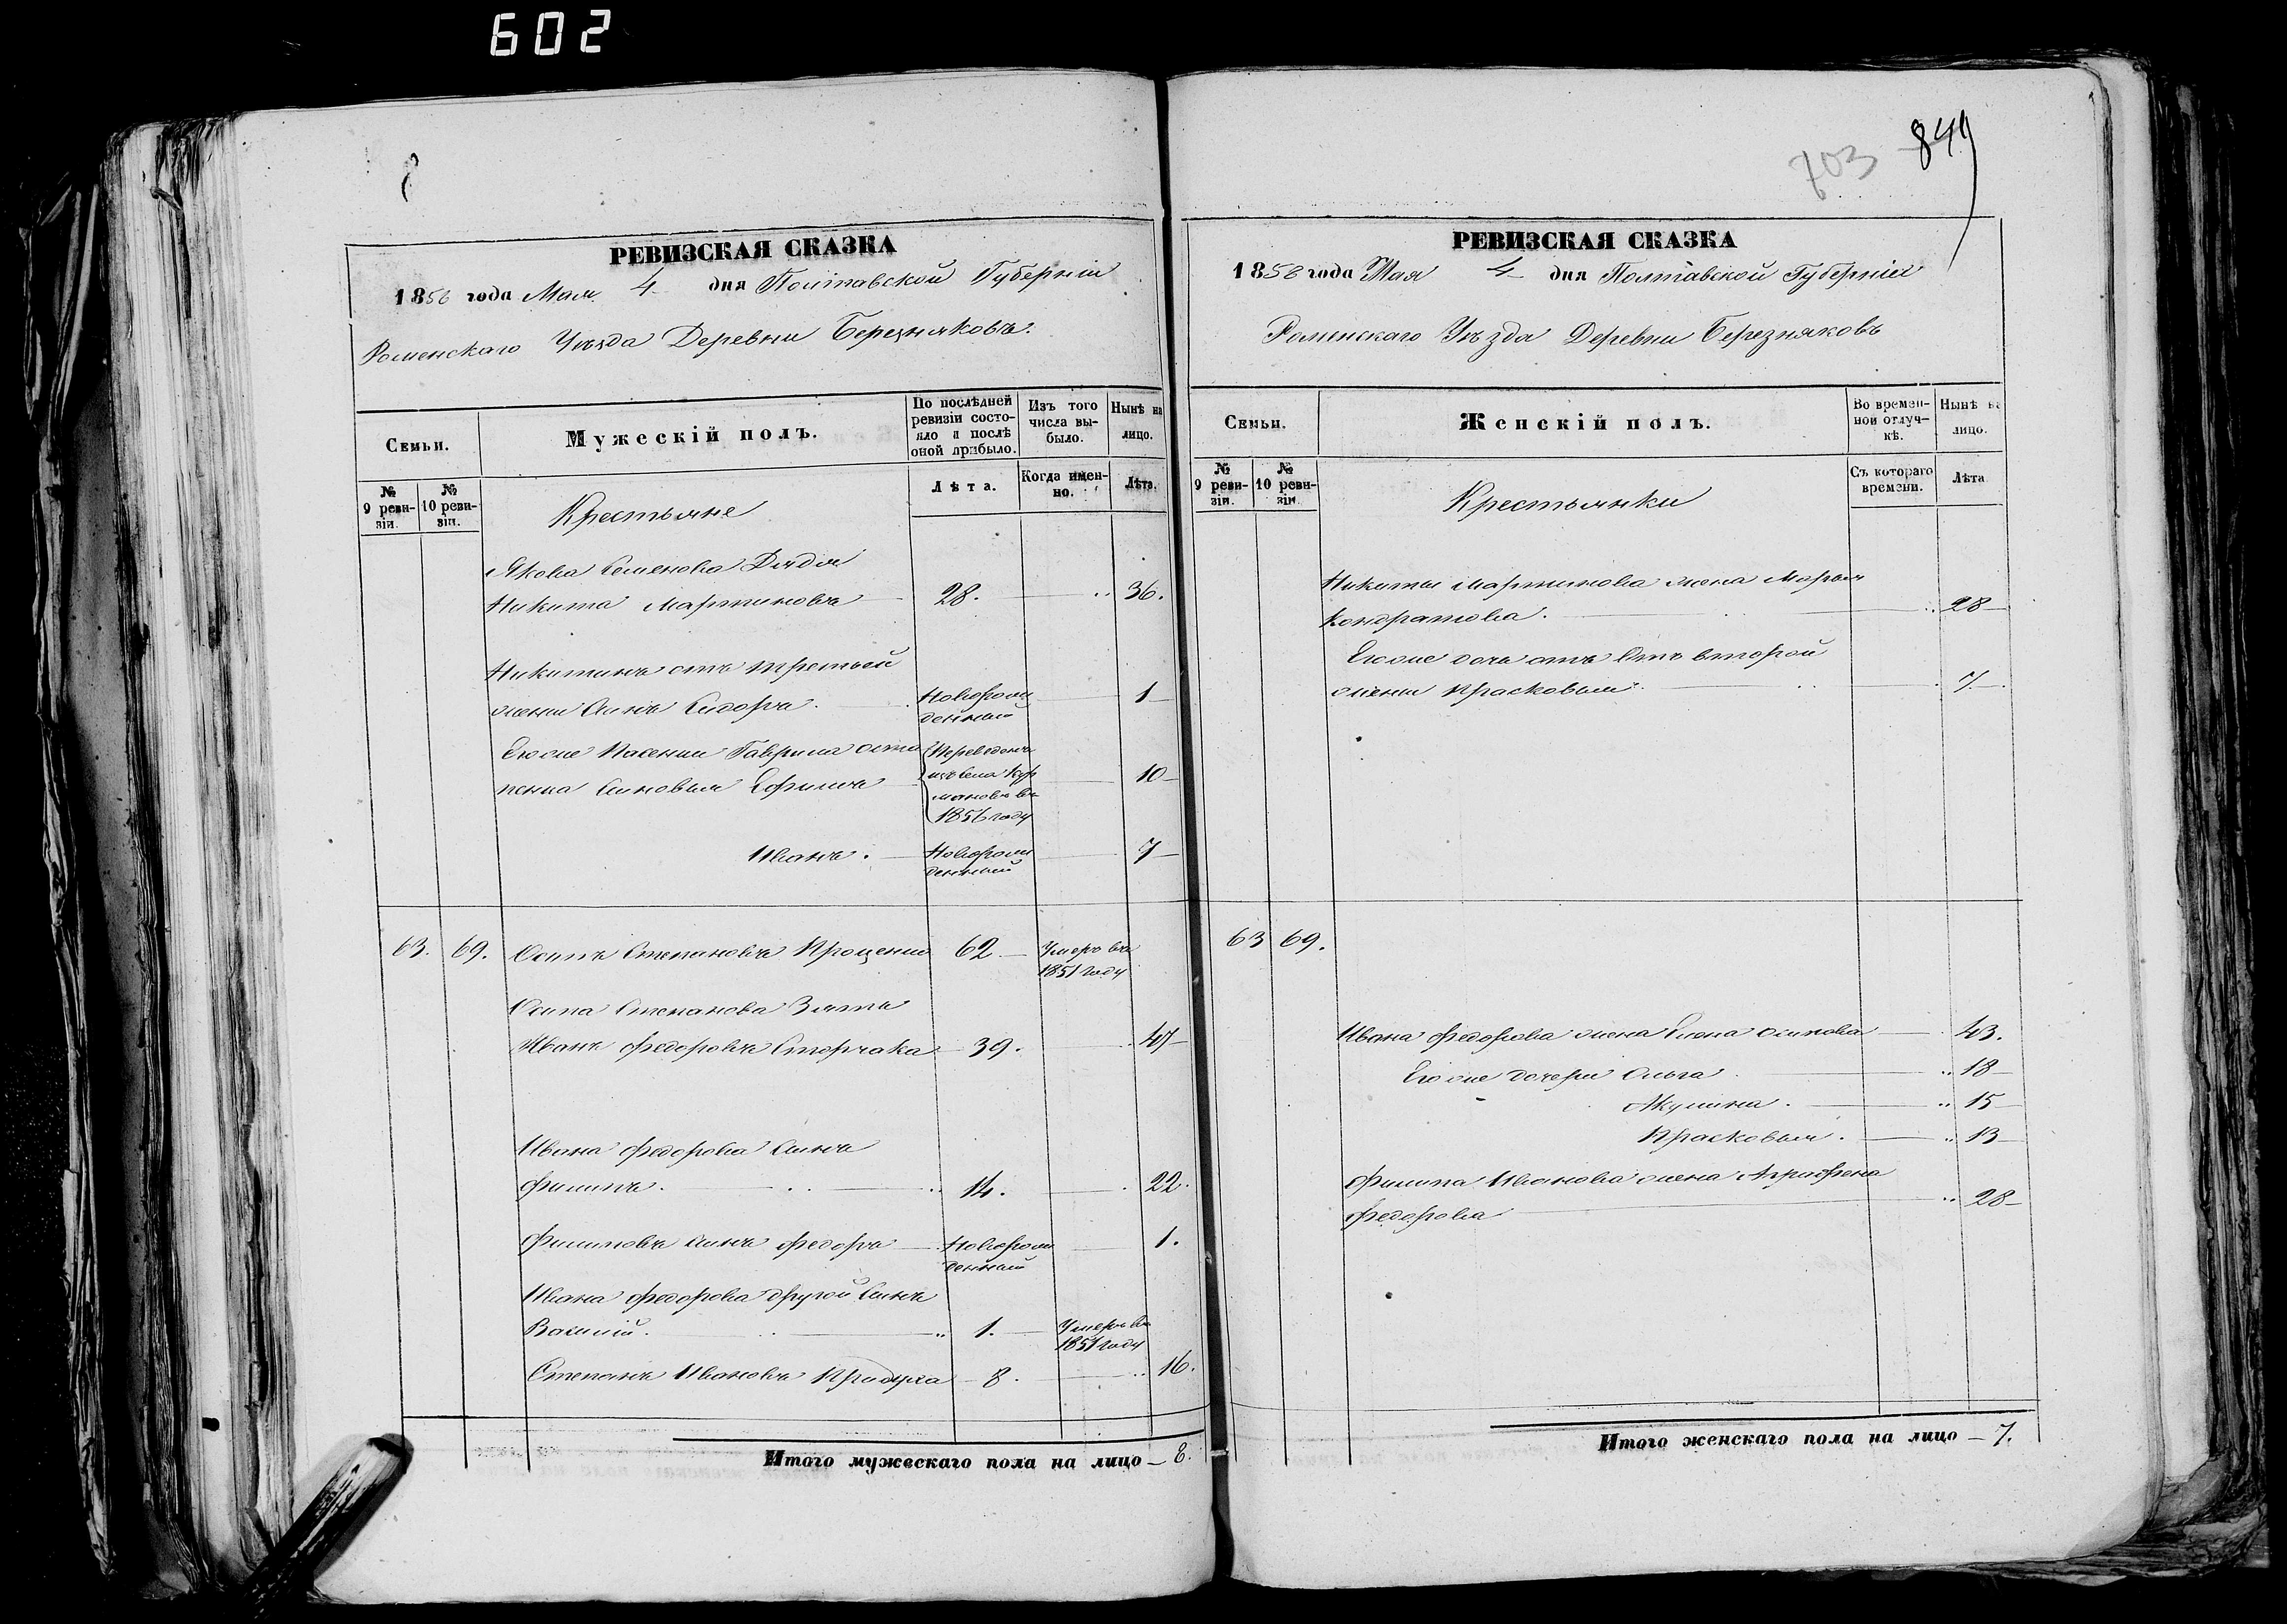 602
703
849
РЕВИЗСКАЯ СКАЗКА
1858 года Мая 4 дня Полтавской Губерніи
Роменскаго Уѣзда Деревни Березняковъ.
Семьи.
Мужескій полъ.
По послѣдней ревизіи состояло и послѣ оной прибыло.
Изъ того числа выбыло.
Нынѣ на лицо.
№ 9 ревизіи.
№ 10 ревизіи.
Крестьяне
Лѣта.
Когда именно.
Лѣта.
Якова Семенова Дядя
Никита Мартиновъ 28. 36.
Никитинъ отъ третьей
жены Сынъ Сидоръ. Новорожденный 1
Его же Пасенки Гаврила
Сыновья Ефимъ Переведенъ изъ села въ 1856 году 10
Иванъ. Новорожденный 7
63. 69. Осипъ Степановъ Проценко 62 Умеръ въ 1851 году
Осипа Степанова Зять
Иванъ Федоровъ Сторчака 39. 47
Ивана Федорова Сынъ
Филипъ. 14. 22.
Филиповъ сынъ Федоръ Новорожденный 1.
Ивана Федорова другой Сынъ
Василій. 1. Умеръ въ 1851 году
Степанъ Ивановъ 8. 16.
Итого мужескаго пола на лицо 8.
РЕВИЗСКАЯ СКАЗКА
1858 года Мая 4 дня Полтавской Губерніи
Роменскаго Уѣзда Деревни Березняковъ
Семьи.
Женскій полъ.
Во временной отлучкѣ.
Нынѣ на лицо.
№ 9 ревизіи.
№ 10 ревизіи.
Крестьянки
Съ котораго времени.
Лѣта
Никиты Мартинова жена Марья
Кондратова. 28
Его же дочь отъ Отъ второй
жены Прасковья. 7.
63 69.
Ивана Федорова жена Елена Осипова 43.
Его же дочери Ольга 18
Акулина. 15
Прасковья. 13
Филипа Иванова жена Агрифена
Федорова 28
Итого женскаго пола на лицо 7.